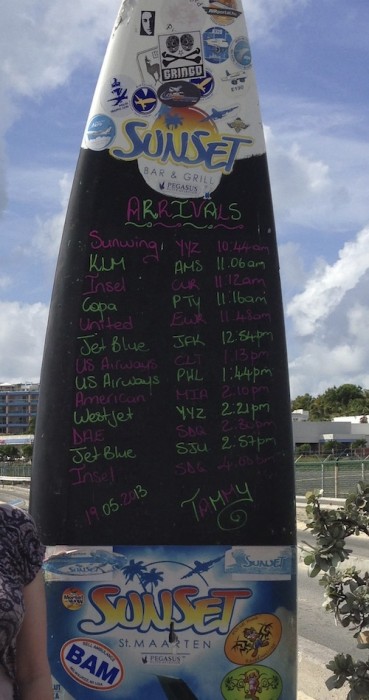 GRINGO
SUNSET
BAR & GRILL
PEGASUS
ARRIVALS
Sunwing YYZ 10:44am
KLM AMS 11.06am
Insel CUR 11:12am
Copa PTY 11:16am
United EWR 11.48am
Jet Blue JFK 12:54pm
US Airways CLT 1.13pm
US Airways PHL 1:44pm
American MIA 2.10pm
Westjet YYZ 2:21pm
DAE SDQ 2.36pm
Jet Blue SJU 2:57pm
Insel SDQ
19.05.2013 TAMMY
SUNSET
SUNSET
SUNSET
ST. MAARTEN
PEGASUS
BAM